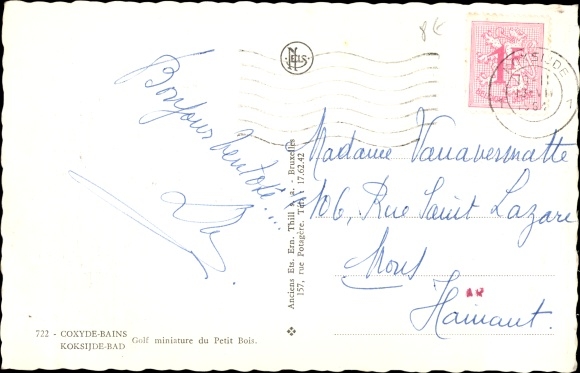 8€
NELS
1F
KOKSIJDE
1
Bonjour
Madame Vanavermatte
106, Rue Saint Lazare
Mons
Hainaut.
Anciens Ets. Ern. Thill s. a. - Bruxelles
157, rue Potagère. Tél. 17.62.42
722 - COXYDE-BAINS
KOKSIJDE-BAD
Golf miniature du Petit Bois.